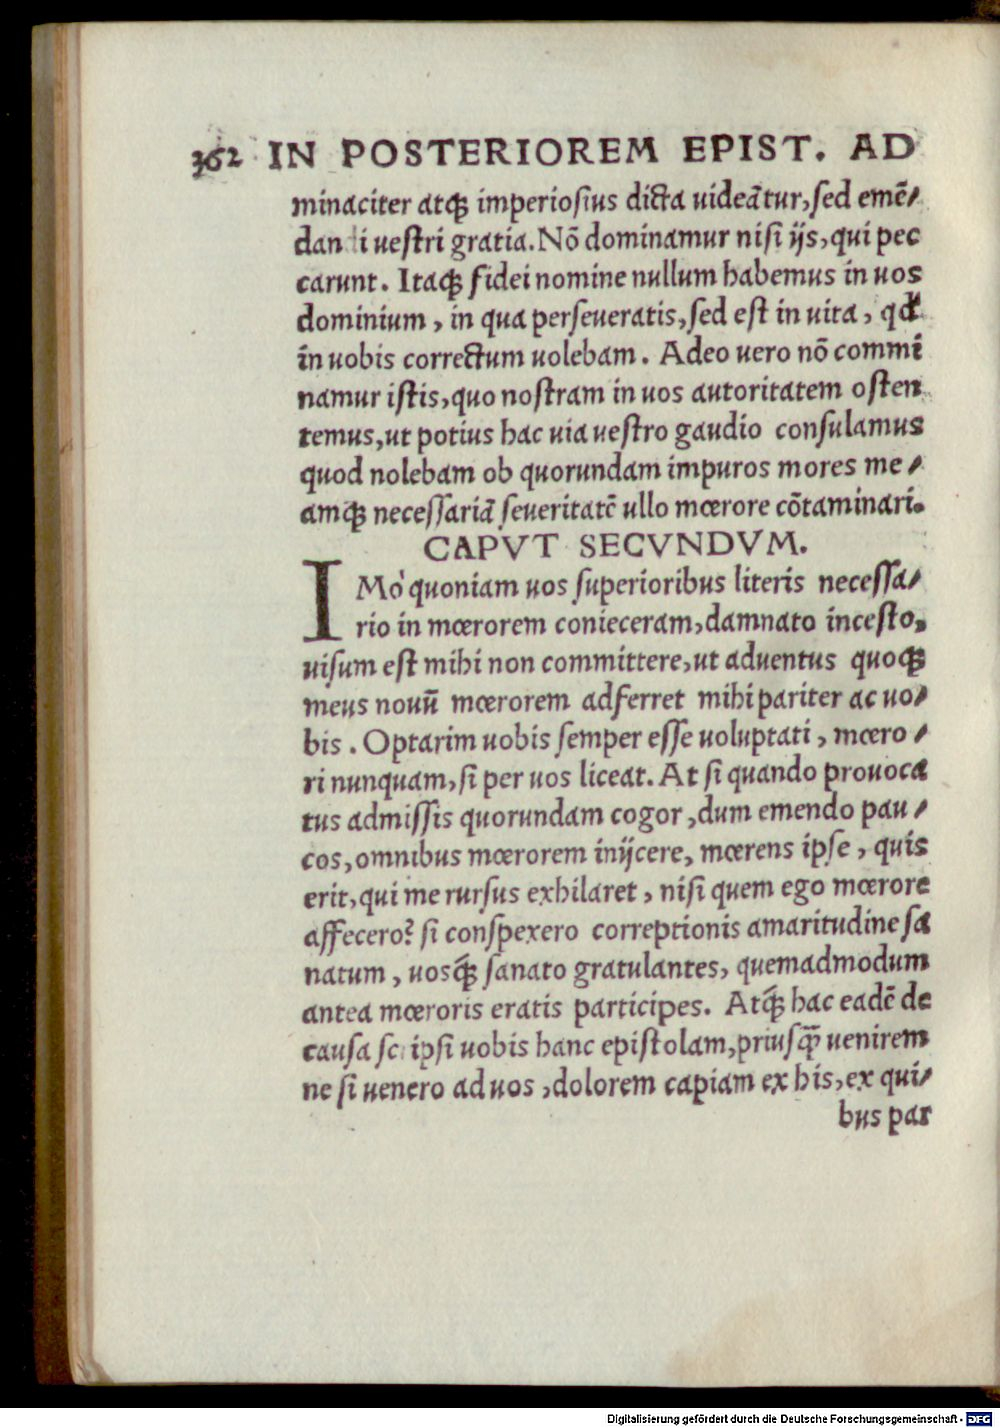 362 IN POSTERIOREM EPIST. AD
minaciter atꝗ imperiosius dicta uideãtur, sed emẽ-
dandi uestri gratia. Nõ dominamur nisi ijs, qui pec
carunt. Itaꝗ fidei nomine nullum habemus in uos
dominium, in qua perseueratis, sed est in uita, qđ
in uobis correctum uolebam. Adeo uero nõ commi
namur istis, quo nostram in uos autoritatem osten
temus, ut potius hac uia uestro gaudio consulamus
quod nolebam ob quorundam impuros mores me-
amꝗ necessariã seueritatẽ ullo mœrore cõtaminari.
CAPVT SECVNDVM.
IMò quoniam uos superioribus literis necessa-
rio in mœrorem conieceram, damnato incesto,
uisum est mihi non committere, ut aduentus quoꝗ
meus nouũ mœrorem adferret mihi pariter ac uo-
bis. Optarim uobis semper esse uoluptati, mœro-
ri nunquam, si per uos liceat. At si quando prouoca
tus admissis quorundam cogor, dum emendo pau-
cos, omnibus mœrorem inijcere, mœrens ipse, quis
erit, qui me rursus exhilaret, nisi quem ego mœrore
affecero? si conspexero correptionis amaritudine sa
natum, uosꝗ́ sanato gratulantes, quemadmodum
antea mœroris eratis participes. Atꝗ́ hac eadẽ de
causa scripsi uobis hanc epistolam, priusꝗ̃ uenirem
ne si uenero ad uos, dolorem capiam ex his, ex qui-
bus par
Digitalisierung gefördert durch die Deutsche Forschungsgemeinschaft - DFG